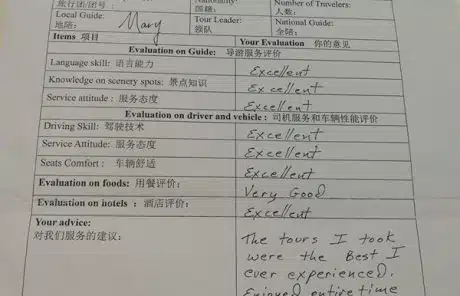 旅行团/团号：
Nationality: 国籍：
Number of Travelers: 人数：
Local Guide: 地陪：
Mary
Tour Leader: 领队
National Guide: 全陪：
Items 项目
Your Evaluation 你的意见
Evaluation on Guide: 导游服务评价
Language skill: 语言能力
Excellent
Knowledge on scenery spots: 景点知识
Excellent
Service attitude : 服务态度
Excellent
Evaluation on driver and vehicle : 司机服务和车辆性能评价
Driving Skill: 驾驶技术
Excellent
Service Attitude: 服务态度
Excellent
Seats Comfort : 车辆舒适
Excellent
Evaluation on foods: 用餐评价：
Very Good
Evaluation on hotels : 酒店评价：
Excellent
Your advice:
对我们服务的建议：
The tours I took
were the Best I
ever experienced.
Enjoyed entire time